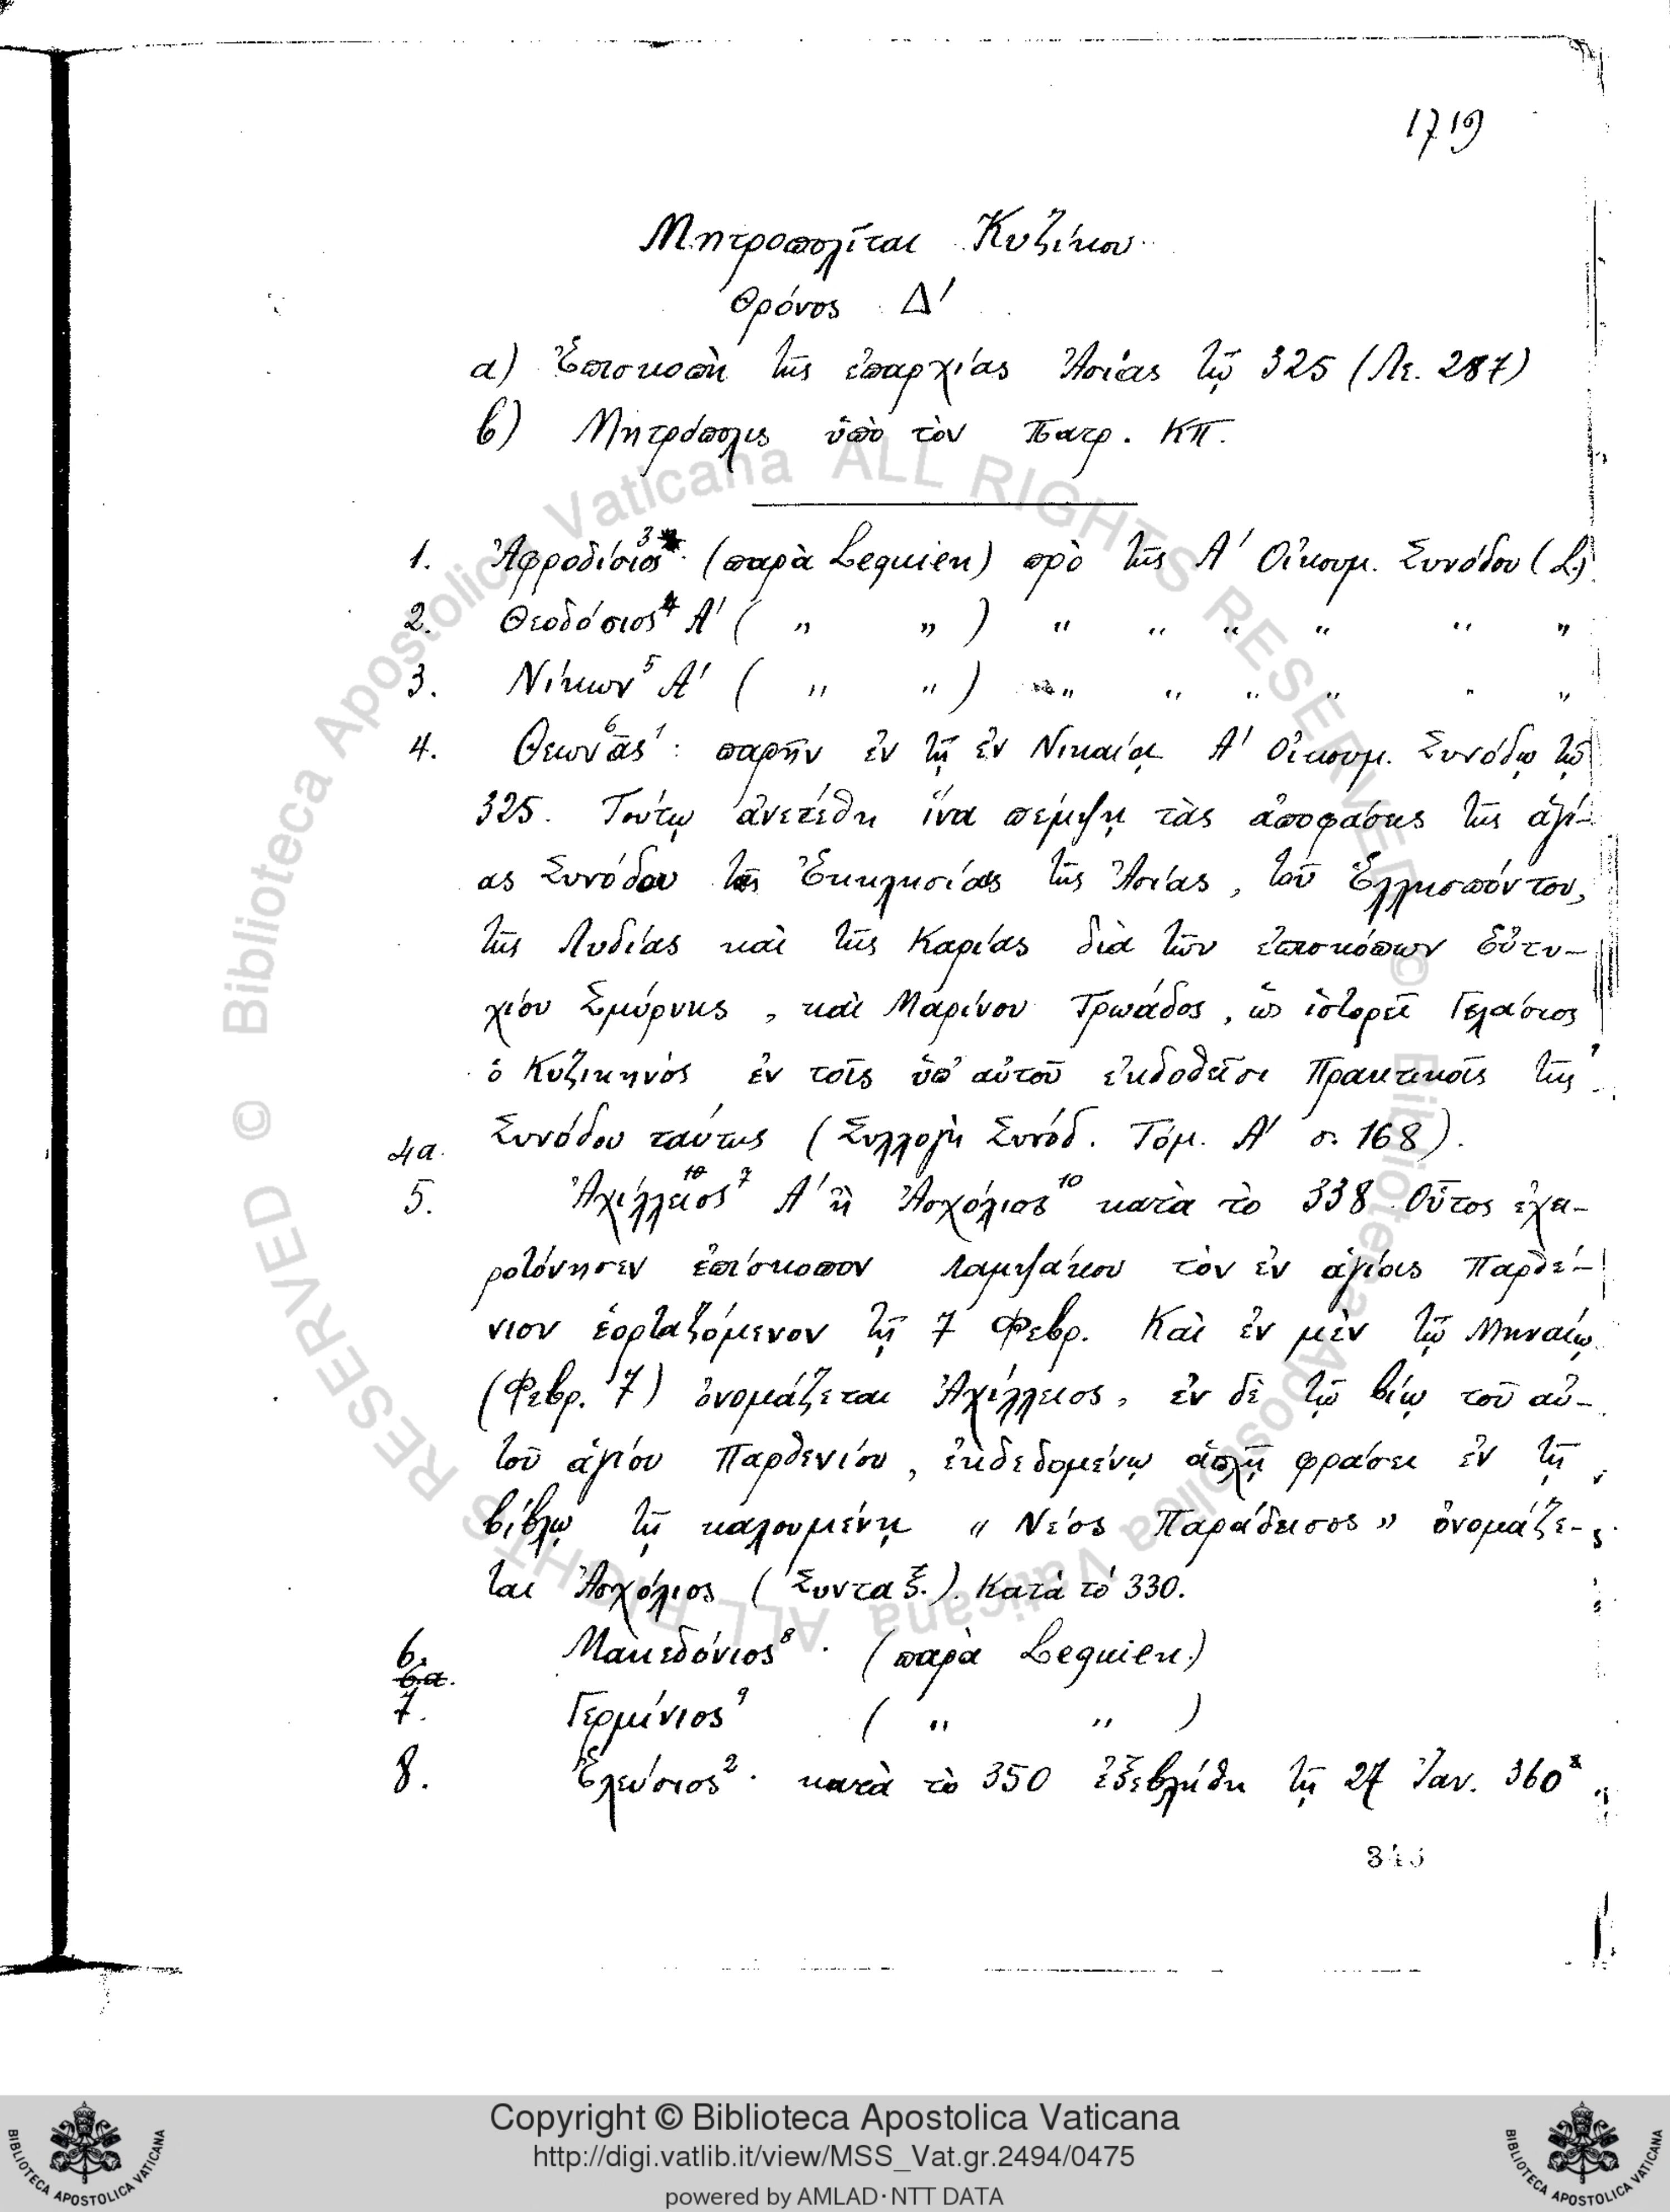 1719
Μητροπολῖται Κυζίκου
Θρόνος Δ'
α) Ἐπισκοπὴ τῆς ἐπαρχίας Ἀσίας τῷ 325 (Λε. 287)
β) Μητρόπολις ὑπὸ τὸν Πατρ. ΚΠ.
1. Ἀφροδίσιος³ (παρὰ Lequien) πρὸ τῆς Α' Οἰκουμ. Συνόδου (L.)
2. Θεοδόσιος⁴ Α' ( " " ) " " " " " "
3. Νίκων⁵ Α' ( " " ) " " " " " "
4. Θεωνᾶς⁶ : παρῆν ἐν τῇ ἐν Νικαίᾳ Α' Οἰκουμ. Συνόδῳ τῷ
325. Τούτῳ ἀνετέθη ἵνα πέμψῃ τὰς ἀποφάσεις τῆς ἁγί-
ας Συνόδου τῆς Ἐκκλησίας τῆς Ἀσίας, τοῦ Ἑλλησπόντου,
τῆς Λυδίας καὶ τῆς Καρίας διὰ τῶν ἐπισκόπων Εὐτυ-
χίου Σμύρνης, καὶ Μαρίνου Τρωάδος, ὡς ἱστορεῖ Γελάσιος
ὁ Κυζικηνός ἐν τοῖς ὑπ' αὐτοῦ ἐκδοθεῖσι Πρακτικοῖς τῆς
Συνόδου ταύτης (Συλλογὴ Συνόδ. Τόμ. Α' σ. 168).
4α.
5. Ἀχίλλειος⁷ Α' ἢ Ἀσχόλιος¹⁰ κατὰ τὸ 338 Οὗτος ἐχει-
ροτόνησεν ἐπίσκοπον Λαμψάκου τὸν ἐν ἁγίοις Παρθέ-
νιον ἑορταζόμενον τῇ 7 Φεβρ. Καὶ ἐν μὲν τῷ Μηναίῳ
(Φεβρ. 7) ὀνομάζεται Ἀχίλλειος, ἐν δὲ τῷ βίῳ τοῦ αὐ-
τοῦ ἁγίου Παρθενίου, ἐκδεδομένῳ ἁπλῇ φράσει ἐν τῇ
βίβλῳ τῇ καλουμένῃ « Νέος Παράδεισος » ὀνομάζε-
ται Ἀσχόλιος (Συνταξ.). Κατά τό 330.
6. Μακεδόνιος⁸ · (παρὰ Lequien)
6α.
7. Γερμίνιος⁹ ( " " )
8. Ἐλεύσιος² · κατὰ τὸ 350 ἐξεβλήθη τῇ 27 Ἰαν. 360
© Biblioteca Apostolica Vaticana ALL RIGHTS RESERVED © Biblioteca Apostolica Vaticana ALL RIGHTS RESERVED
Copyright © Biblioteca Apostolica Vaticana
http://digi.vatlib.it/view/MSS_Vat.gr.2494/0475
powered by AMLAD·NTT DATA
BIBLIOTECA APOSTOLICA VATICANA
BIBLIOTECA APOSTOLICA VATICANA